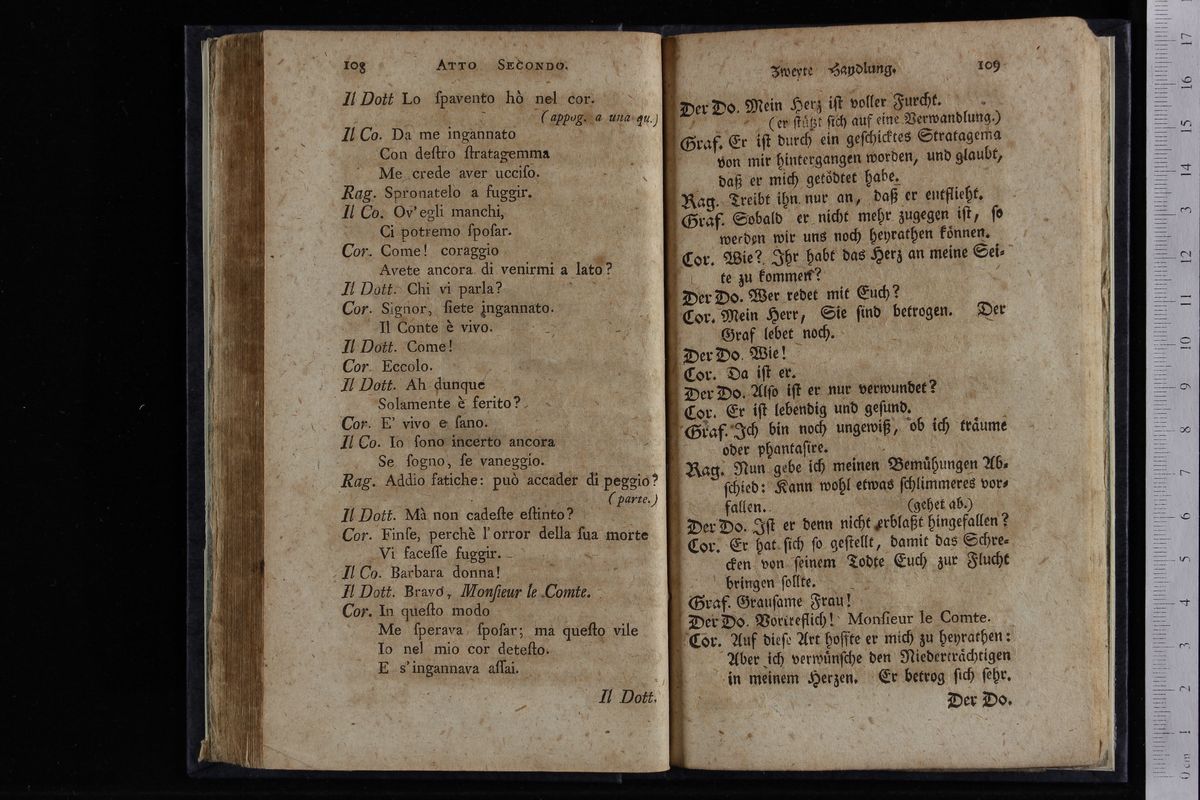 108 ATTO SECONDO.
Il Dott Lo ſpavento hò nel cor.
(appog. a una qu.)
Il Co. Da me ingannato
Con deſtro ſtratagemma
Me crede aver ucciſo.
Rag. Spronatelo a fuggir.
Il Co. Ov'egli manchi,
Ci potremo ſpoſar.
Cor. Come! coraggio
Avete ancora di venirmi a lato?
Il Dott. Chi vi parla?
Cor. Signor, ſiete ingannato.
Il Conte è vivo.
Il Dott. Come!
Cor Eccolo.
Il Dott. Ah dunque
Solamente è ferito?
Cor. E' vivo e ſano.
Il Co. Io ſono incerto ancora
Se ſogno, ſe vaneggio.
Rag. Addio fatiche: può accader di peggio?
(parte.)
Il Dott. Mà non cadeſte eſtinto?
Cor. Finſe, perchè l'orror della ſua morte
Vi faceſſe fuggir.
Il Co. Barbara donna!
Il Dott. Bravo, Monſieur le Comte.
Cor. In queſto modo
Me ſperava ſpoſar; ma queſto vile
Io nel mio cor deteſto.
E s'ingannava aſſai.
Il Dott.
Zweyte Handlung. 109
Der Do. Mein Herz iſt voller Furcht.
(er ſtützt ſich auf eine Verwandlung.)
Graf. Er iſt durch ein geſchicktes Stratagema
von mir hintergangen worden, und glaubt,
daß er mich getödtet habe.
Rag. Treibt ihn nur an, daß er entflieht.
Graf. Sobald er nicht mehr zugegen iſt, ſo
werden wir uns noch heyrathen können.
Cor. Wie? Ihr habt das Herz an meine Sei⸗
te zu kommen?
Der Do. Wer redet mit Euch?
Cor. Mein Herr, Sie ſind betrogen. Der
Graf lebet noch.
Der Do. Wie!
Cor. Da iſt er.
Der Do. Alſo iſt er nur verwundet?
Cor. Er iſt lebendig und geſund.
Graf. Ich bin noch ungewiß, ob ich träume
oder phantaſire.
Rag. Nun gebe ich meinen Bemühungen Ab⸗
ſchied: Kann wohl etwas ſchlimmeres vor⸗
fallen. (gehet ab.)
Der Do. Iſt er denn nicht erblaßt hingefallen?
Cor. Er hat ſich ſo geſtellt, damit das Schre⸗
cken von ſeinem Todte Euch zur Flucht
bringen ſollte.
Graf. Grauſame Frau!
Der Do. Vortreflich! Monſieur le Comte.
Cor. Auf dieſe Art hoffte er mich zu heyrathen:
Aber ich verwünſche den Niederträchtigen
in meinem Herzen. Er betrog ſich ſehr.
Der Do.
0 cm 1 2 3 4 5 6 7 8 9 10 11 12 13 14 15 16 17